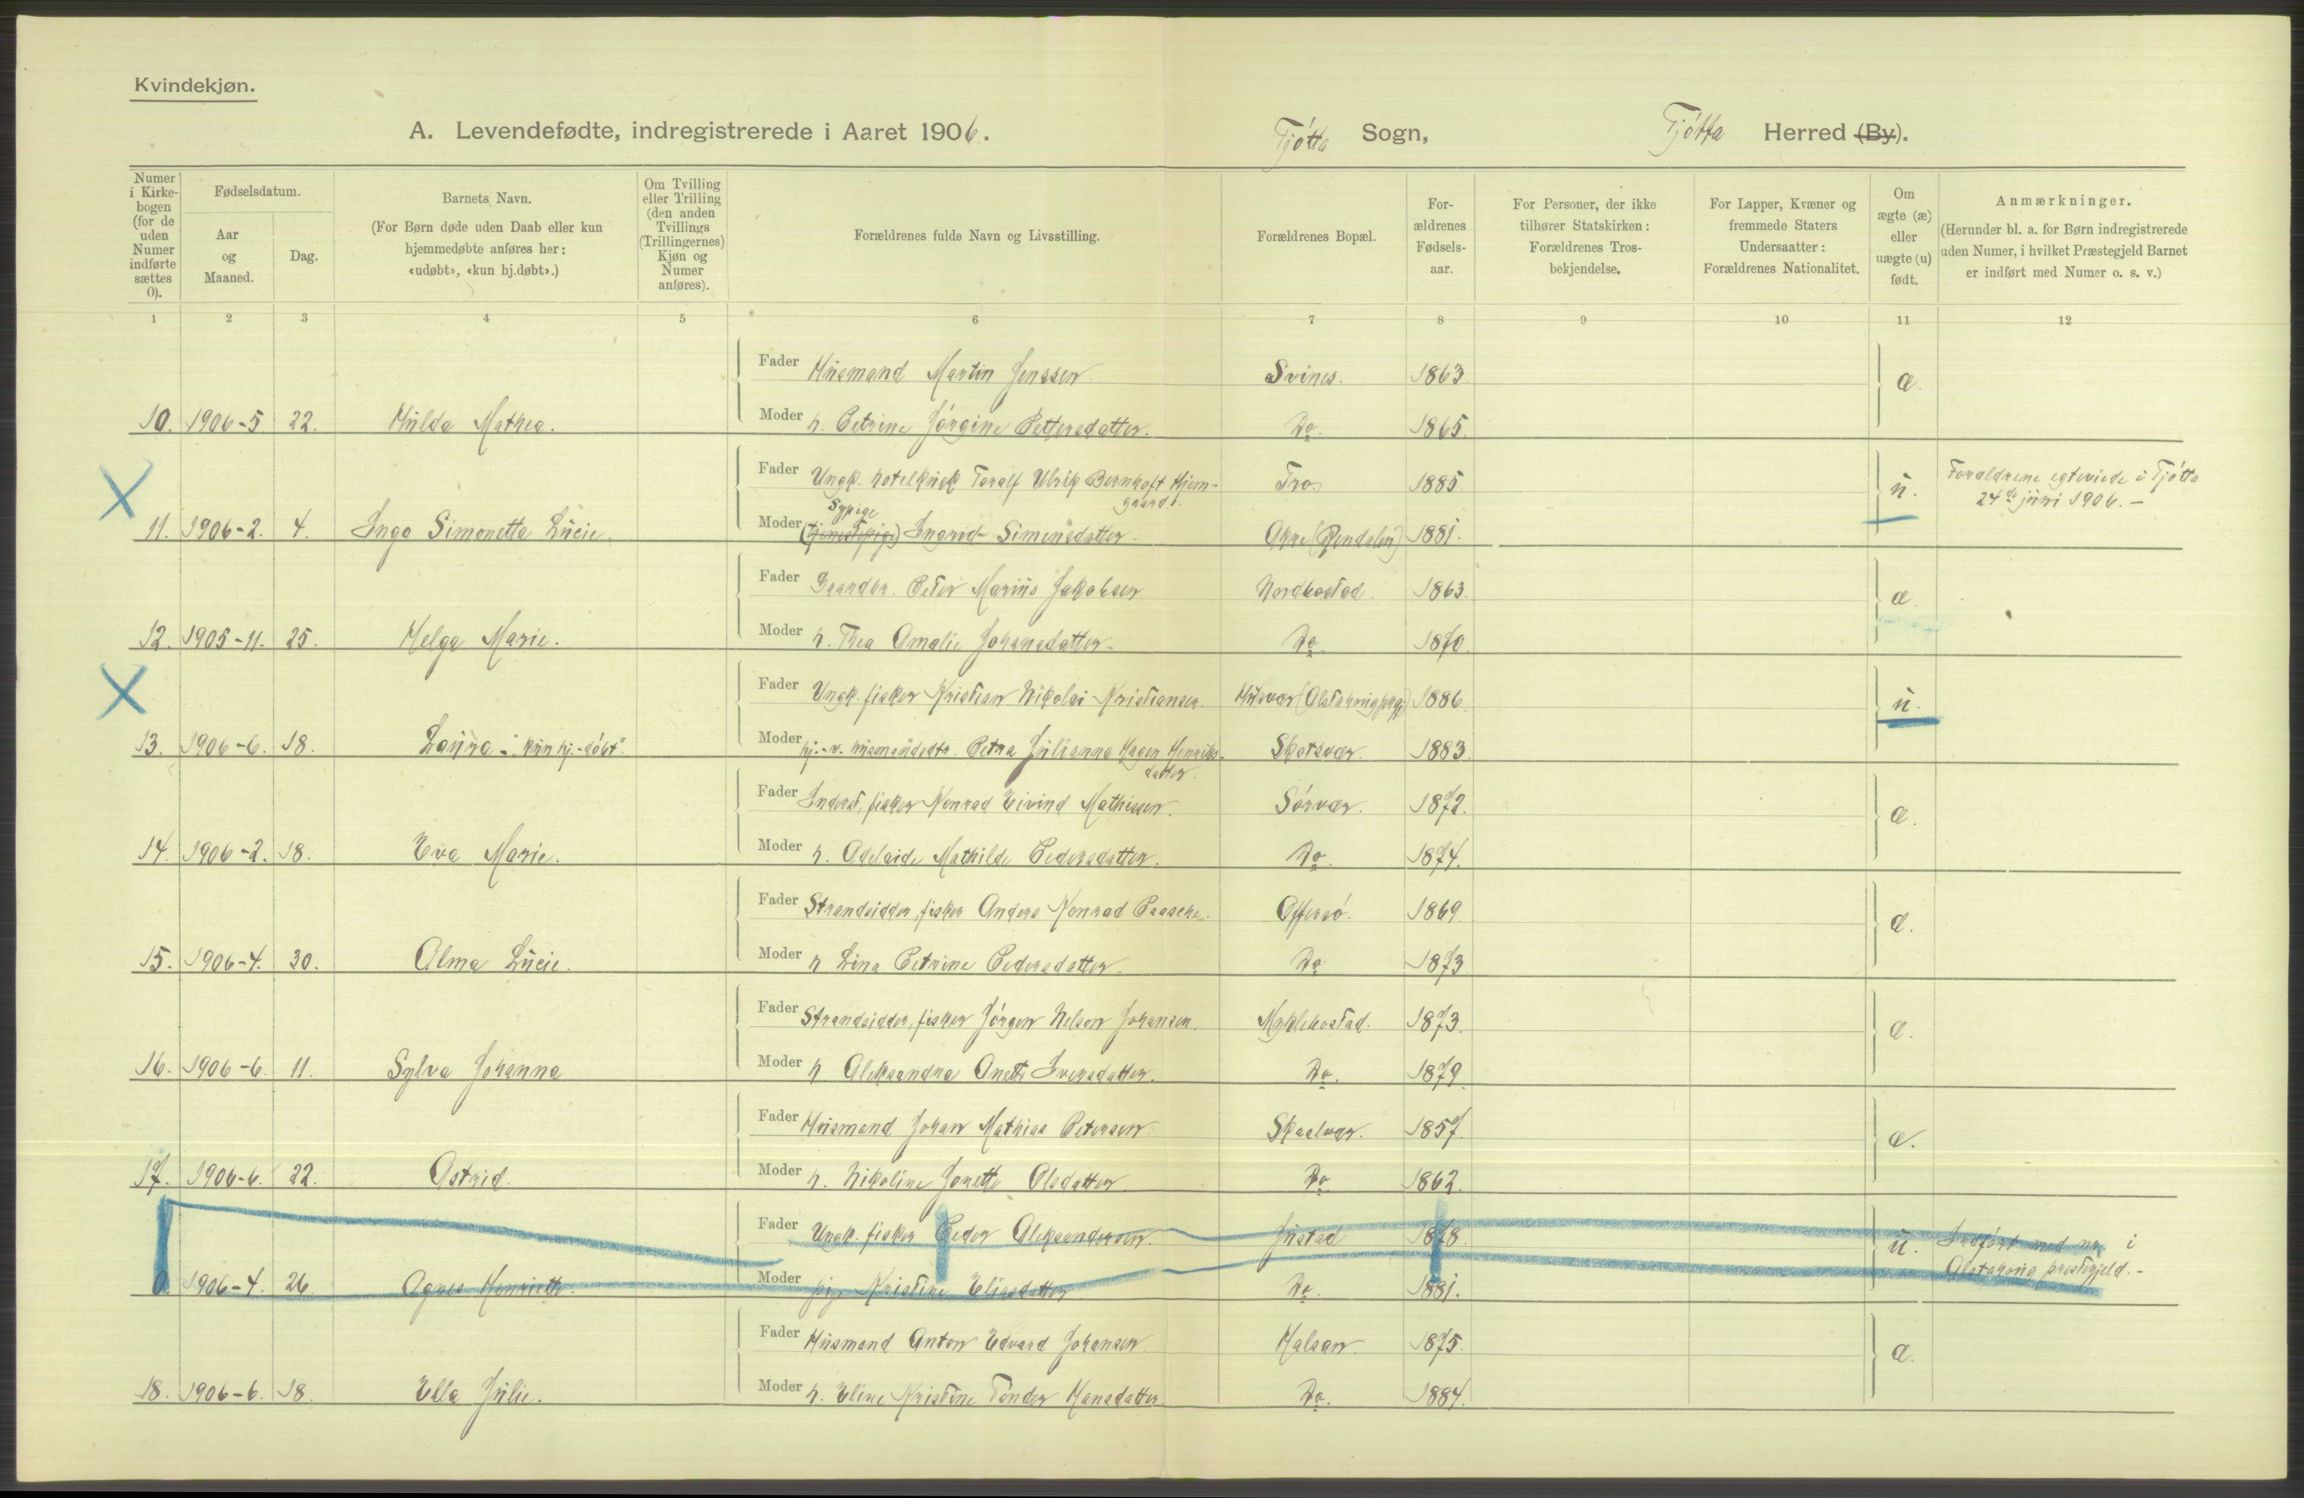 Kvindekjøn.
A. Levendefødte, indregistrerede i Aaret 1906. Tjøtta Sogn, Tjøtta Herred (By).
Numer i Kirkebogen (for de uden Numer indførte sættes 0).
Fødselsdatum.
Aar og Maaned.
Dag.
Barnets Navn.
(For Børn døde uden Daab eller kun hjemmedøbte anføres her: «udøbt», «kun hj.døbt».)
Om Tvilling eller Trilling (den anden Tvillings (Trillingernes) Kjøn og Numer anføres).
Forældrenes fulde Navn og Livsstilling.
Forældrenes Bopæl.
Forældrenes Fødselsaar.
For Personer, der ikke tilhører Statskirken: Forældrenes Trosbekjendelse.
For Lapper, Kvæner og fremmede Staters Undersaatter: Forældrenes Nationalitet.
Om ægte (æ) eller uægte (u) født.
Anmærkninger.
(Herunder bl. a. for Børn indregistrerede uden Numer, i hvilket Præstegjeld Barnet er indført med Numer o. s. v.)
1 2 3 4 5 6 7 8 9 10 11 12
Fader Husmand Martin Jenssen Svines. 1863. æ.
10. 1906-5 22. Hulda Mathea. Moder h. Petrine Jørgine Pettersdatter. Do. 1865.
Fader Ungk. hotelkusk Toralf Ulrik Bernhoft Hjemgaard. Tro. 1885. u. Foraldrene egteviede i Tjøtta 24de juni 1906.-
Sypige
11. 1906-2. 4. Inga Simonetta Lucie. Moder (tjenestepige) Ingrid Simonsdatter. Akre (Rendalen) 1881.
Fader Gaardbr. Peter Marius Jakobsen Nordbostad. 1863. æ.
12. 1905-11. 25. Helga Marie. Moder h. Thea Amalie Johansdatter- Do. 1870.
Fader Ungk. fisker Kristian Nikolai Kristiansen. Husvær (Alstahoug prgj) 1886 u.
13. 1906-6. 18. Laura - "kun hj.-døbt". Moder hj.-v. husmandsdtr. Petra Julianna Hagen Henriksdatter. Skotsvær. 1883.
Fader Inderst, fisker Konrad Eivind Mathissen. Sørvær. 1872. æ.
14. 1906-2. 18. Eva Marie. Moder h. Adelaide Mathilde Pedersdatter. Do. 1874.
Fader Strandsidder, fisker Anders Konrad Paasche. Offersø. 1869. æ.
15. 1906-4. 30. Alma Lucie. Moder h Lina Petrine Pedersdatter. Do 1873
Fader Strandsidder, fisker Jørgen Nelson Johansen. Myklebostad. 1873. æ.
16. 1906-6. 11. Sylva Johanna Moder h Aleksandra Anette Iversdatter. Do. 1879.
Fader Husmand Johan Mathias Petersen. Skaalvær. 1857. æ.
17. 1906-6. 22. Astrid. Moder h. Nikoline Jonette Olsdatter. Do 1862.
Fader Ungk. fisker Peder Aleksandersen. 1878 u. Indført med nr. i Alstahoug prestegjeld.-
0 1906-4. 26. Agnes Henriette. Moder pige Kristine Eliasdatter Do. 1881.
Fader Husmand Anton Edvard Johansen Halsan. 1875. æ.
18. 1906-6. 18. Ella Julie. Moder h. Eline Kristine Tønder Hansdatter. Do. 1884.